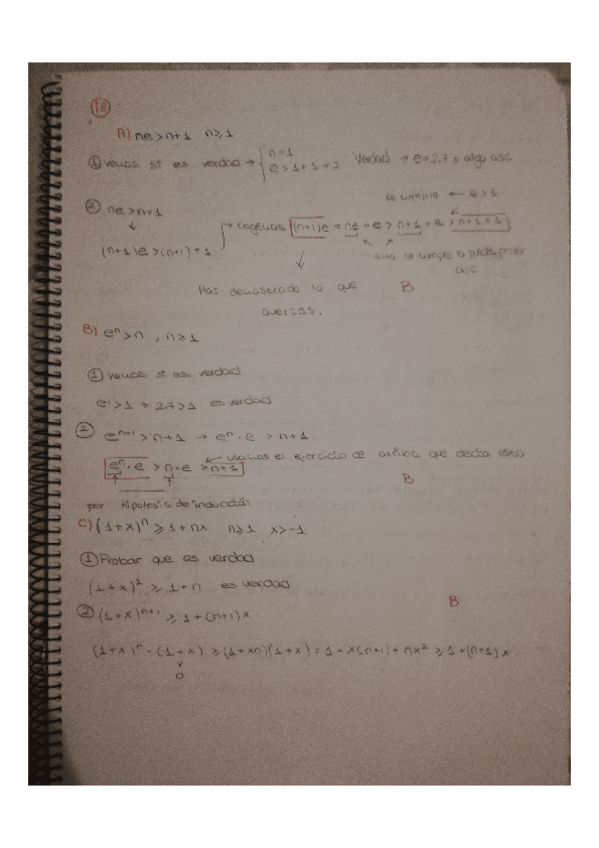 18
A) ne > n+1 n ≥ 1
① veamos si es verdad → { n=1
e > 1+1 = 2 Verdad → e = 2.7 o algo asi
se cumple ← e > 1
② ne > n+1
↓
(n+1)e > (n+1)+1
→ cogemos (n+1)e = ne + e > n+1 + e > n+1+1
esto se cumple lo puedes poner
asi
↓
Has demostrado lo que B
querías.
B) eⁿ > n , n ≥ 1
① veamos si es verdad
e¹ > 1 → 2.7 > 1 es verdad
② eⁿ⁺¹ > n+1 → eⁿ · e > n+1
← usamos el ejercicio de arriba que decia esto
eⁿ · e > n · e > n+1
B
por hipotesis de inducción
C) (1+x)ⁿ ≥ 1+nx n ≥ 1 x > -1
① Probar que es verdad
(1+x)¹ ≥ 1+n es verdad
B
② (1+x)ⁿ⁺¹ ≥ 1+(n+1)x
(1+x)ⁿ · (1+x) ≥ (1+xn)(1+x) = 1+x(n+1) + nx² ≥ 1+(n+1)x
v
0